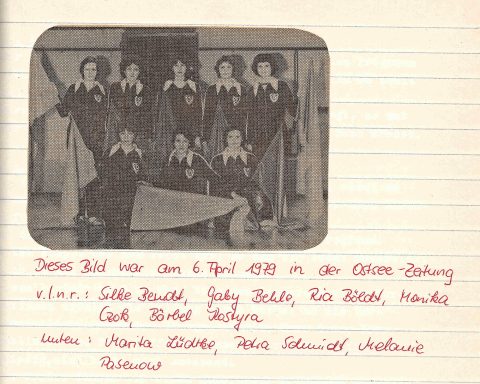 Dieses Bild war am 6. April 1979 in der Ostsee-Zeitung
v.l.n.r.: Silke Bendt, Gaby Behls, Ria Böldt, Monika
Bärbel Kostyra
unten: Marita Lüdtke, Petra Schmidt, Melanie
Pasenow